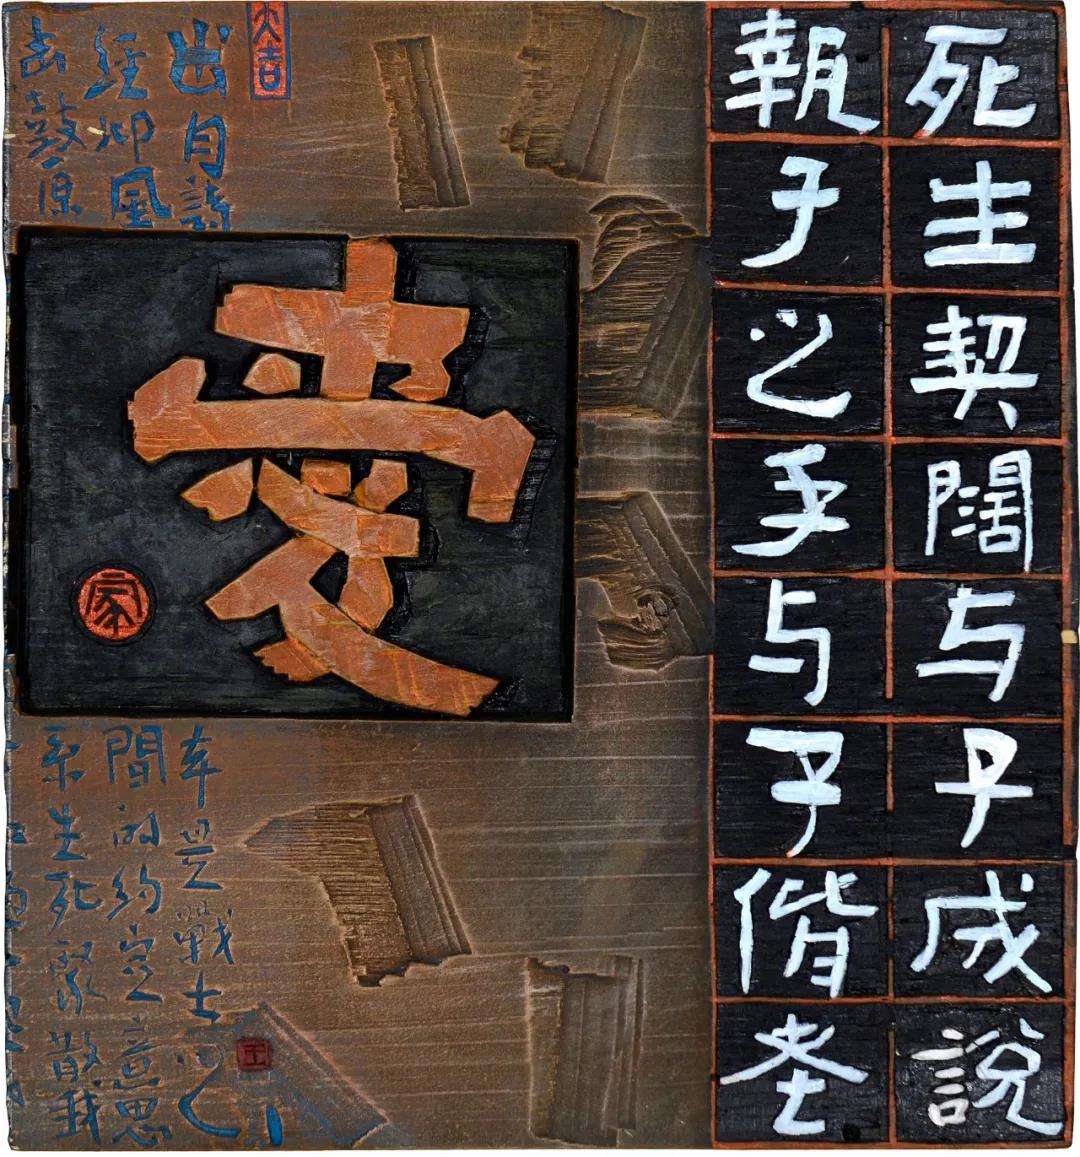 死生契闊与子成說
執子之手与子偕老
大吉
愛
家
出自詩
經邶風
击鼓原
本是戰士
間的约定意思
生死聚散我
王